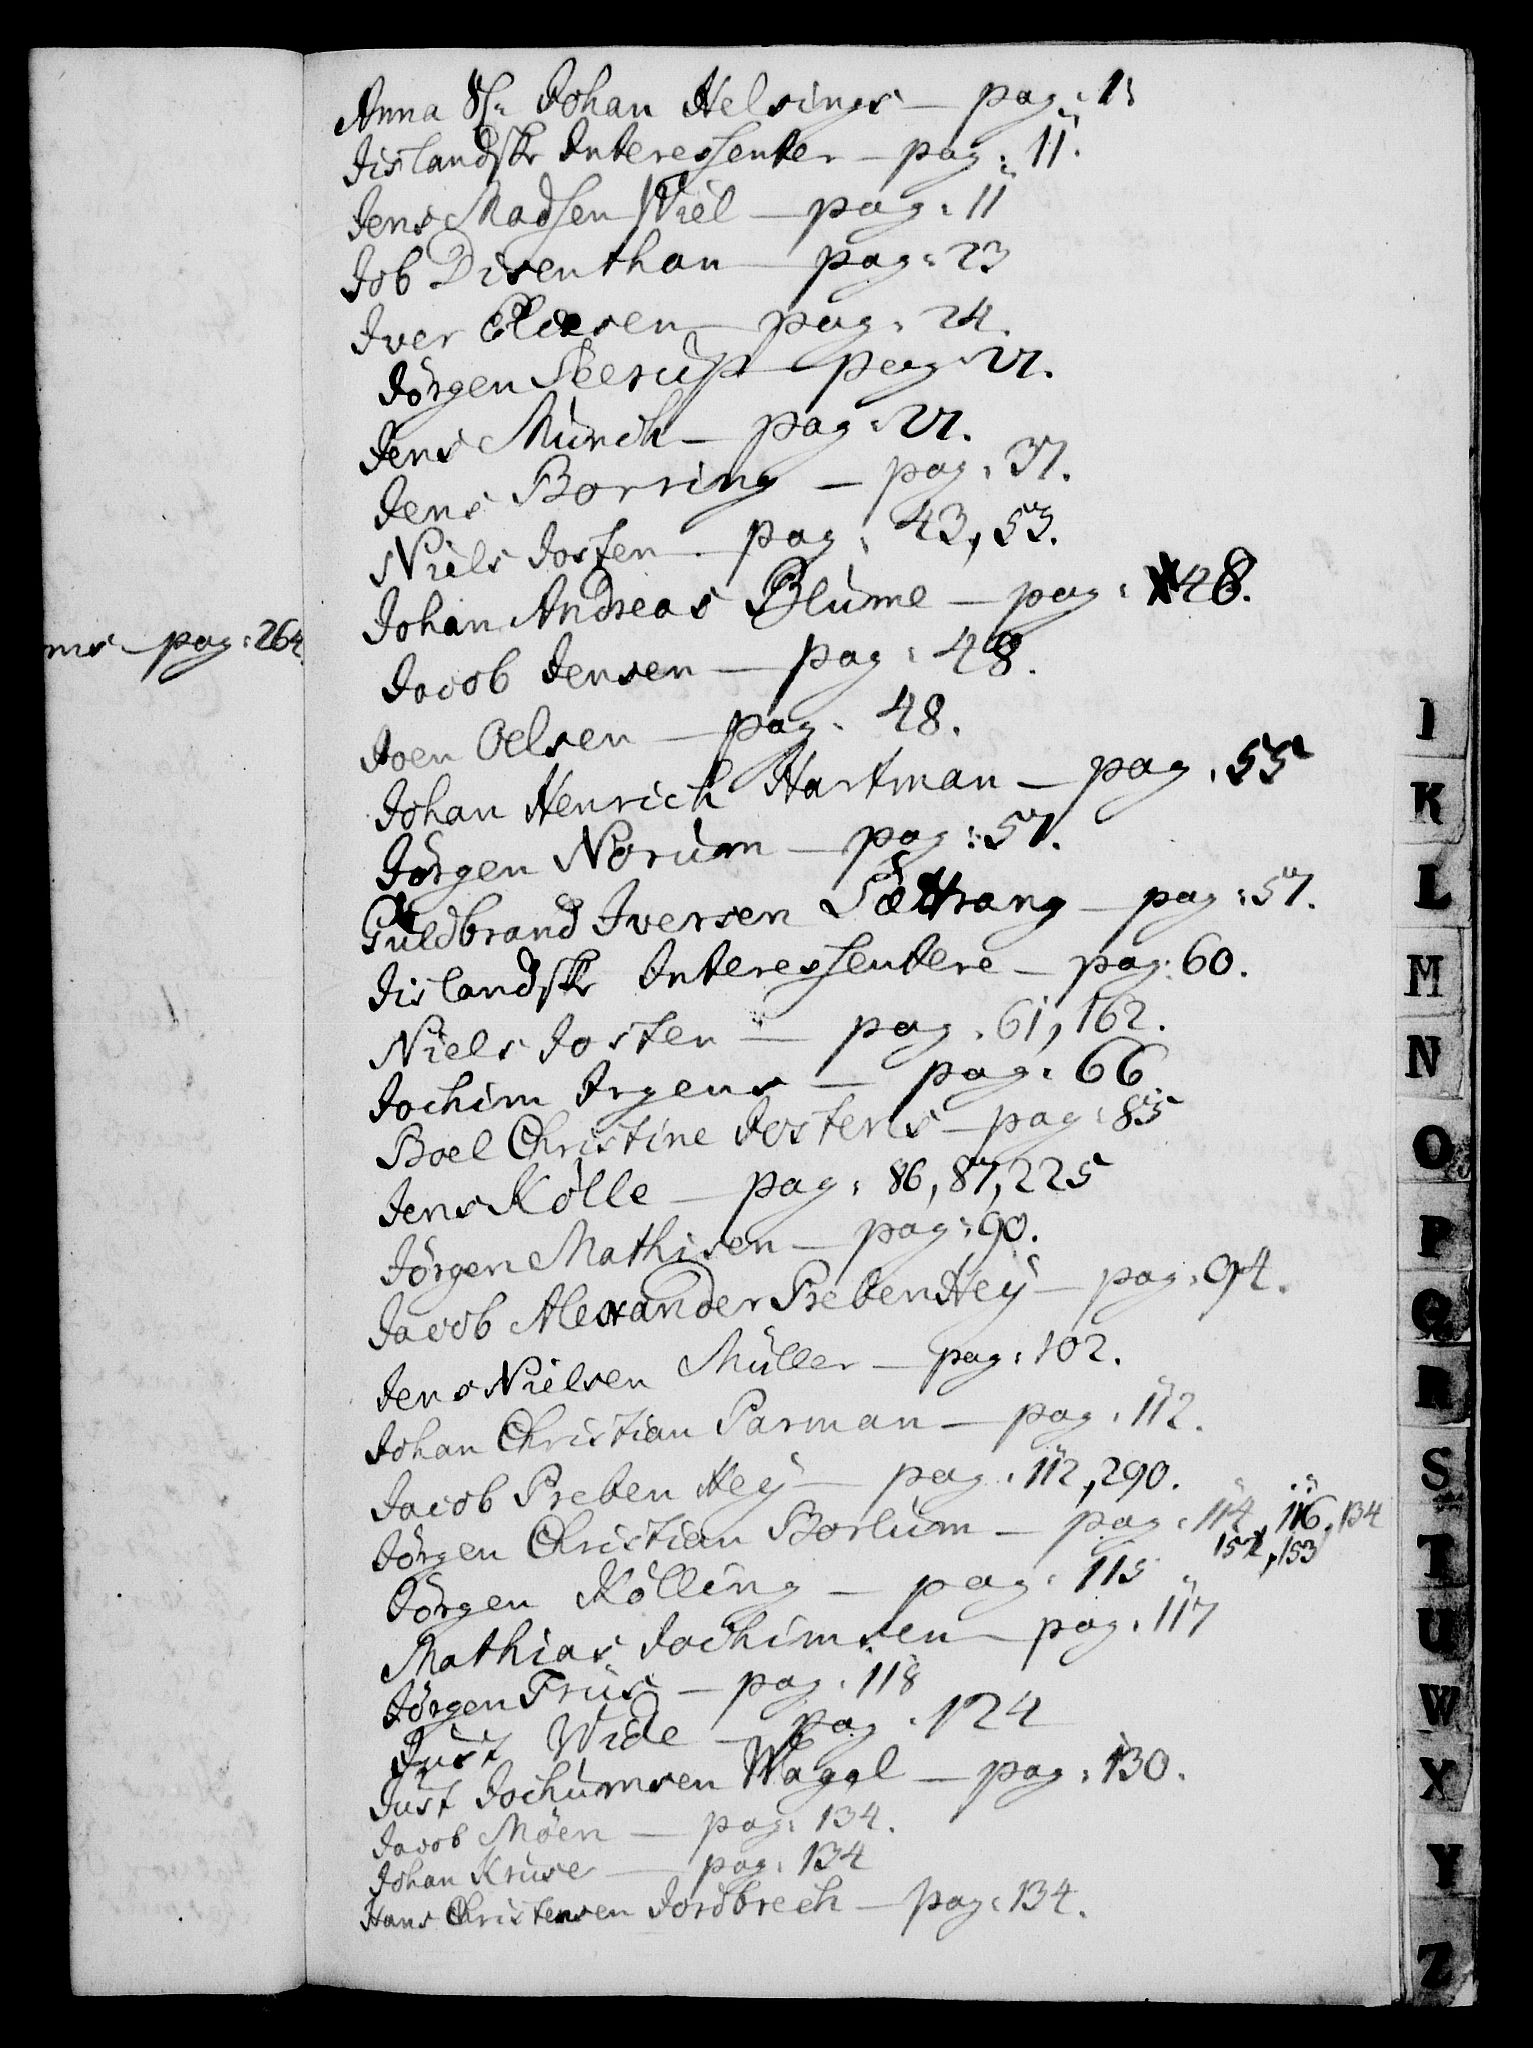 Anna Johan Helsings — pag: 1
Jislandske Interessenter — pag: 11.
Jens Madsen Wiel — pag: 11
Job Disenthan — pag: 23
Iver Eliesen — pag: 24.
Jörgen Seerup — pag: 27.
Jens Münch — pag: 27.
Jens Borring — pag: 37.
Niels Josten — pag: 43, 53.
Johan Andreas Blüme — pag: 48.
ms — pag: 264.
Jacob Jensen — pag: 48.
Joen Oelsen — pag: 48.
Johan Henrich Hartman — pag: 55
Jörgen Norüm — pag: 57.
Güldbrand Iversen Sættrang — pag: 57.
Jislandske Interessentere — pag: 60.
Niels Josten — pag: 61, 162.
Jochim Irgens — pag: 66.
Boel Christine Jostens — pag: 85
Jens Kölle — pag: 86, 87, 225
Jörgen Mathisen — pag: 90.
Jacob Alexander Preben Heÿ — pag: 94.
Jens Nielsen Müller — pag: 102.
Johan Christian Parman — pag: 112.
Jacob Preben Heÿ — pag: 112, 290.
Jörgen Christian Borlüm — pag: 114, 116, 134
152, 153
Jörgen Kölling — pag: 115
Mathias Jochimsen — pag: 117
Jörgen Früs — pag: 118
Jüst Wide — pag: 124
Jüst Jochümsen Waggl — pag: 130.
Jacob Möen — pag: 134.
Johan Krüse — pag: 134
Hans Christensen Jordbrech — pag: 134.
I
K
L
M
N
O
P
Q
R
S
T
U
W
X
Y
Z